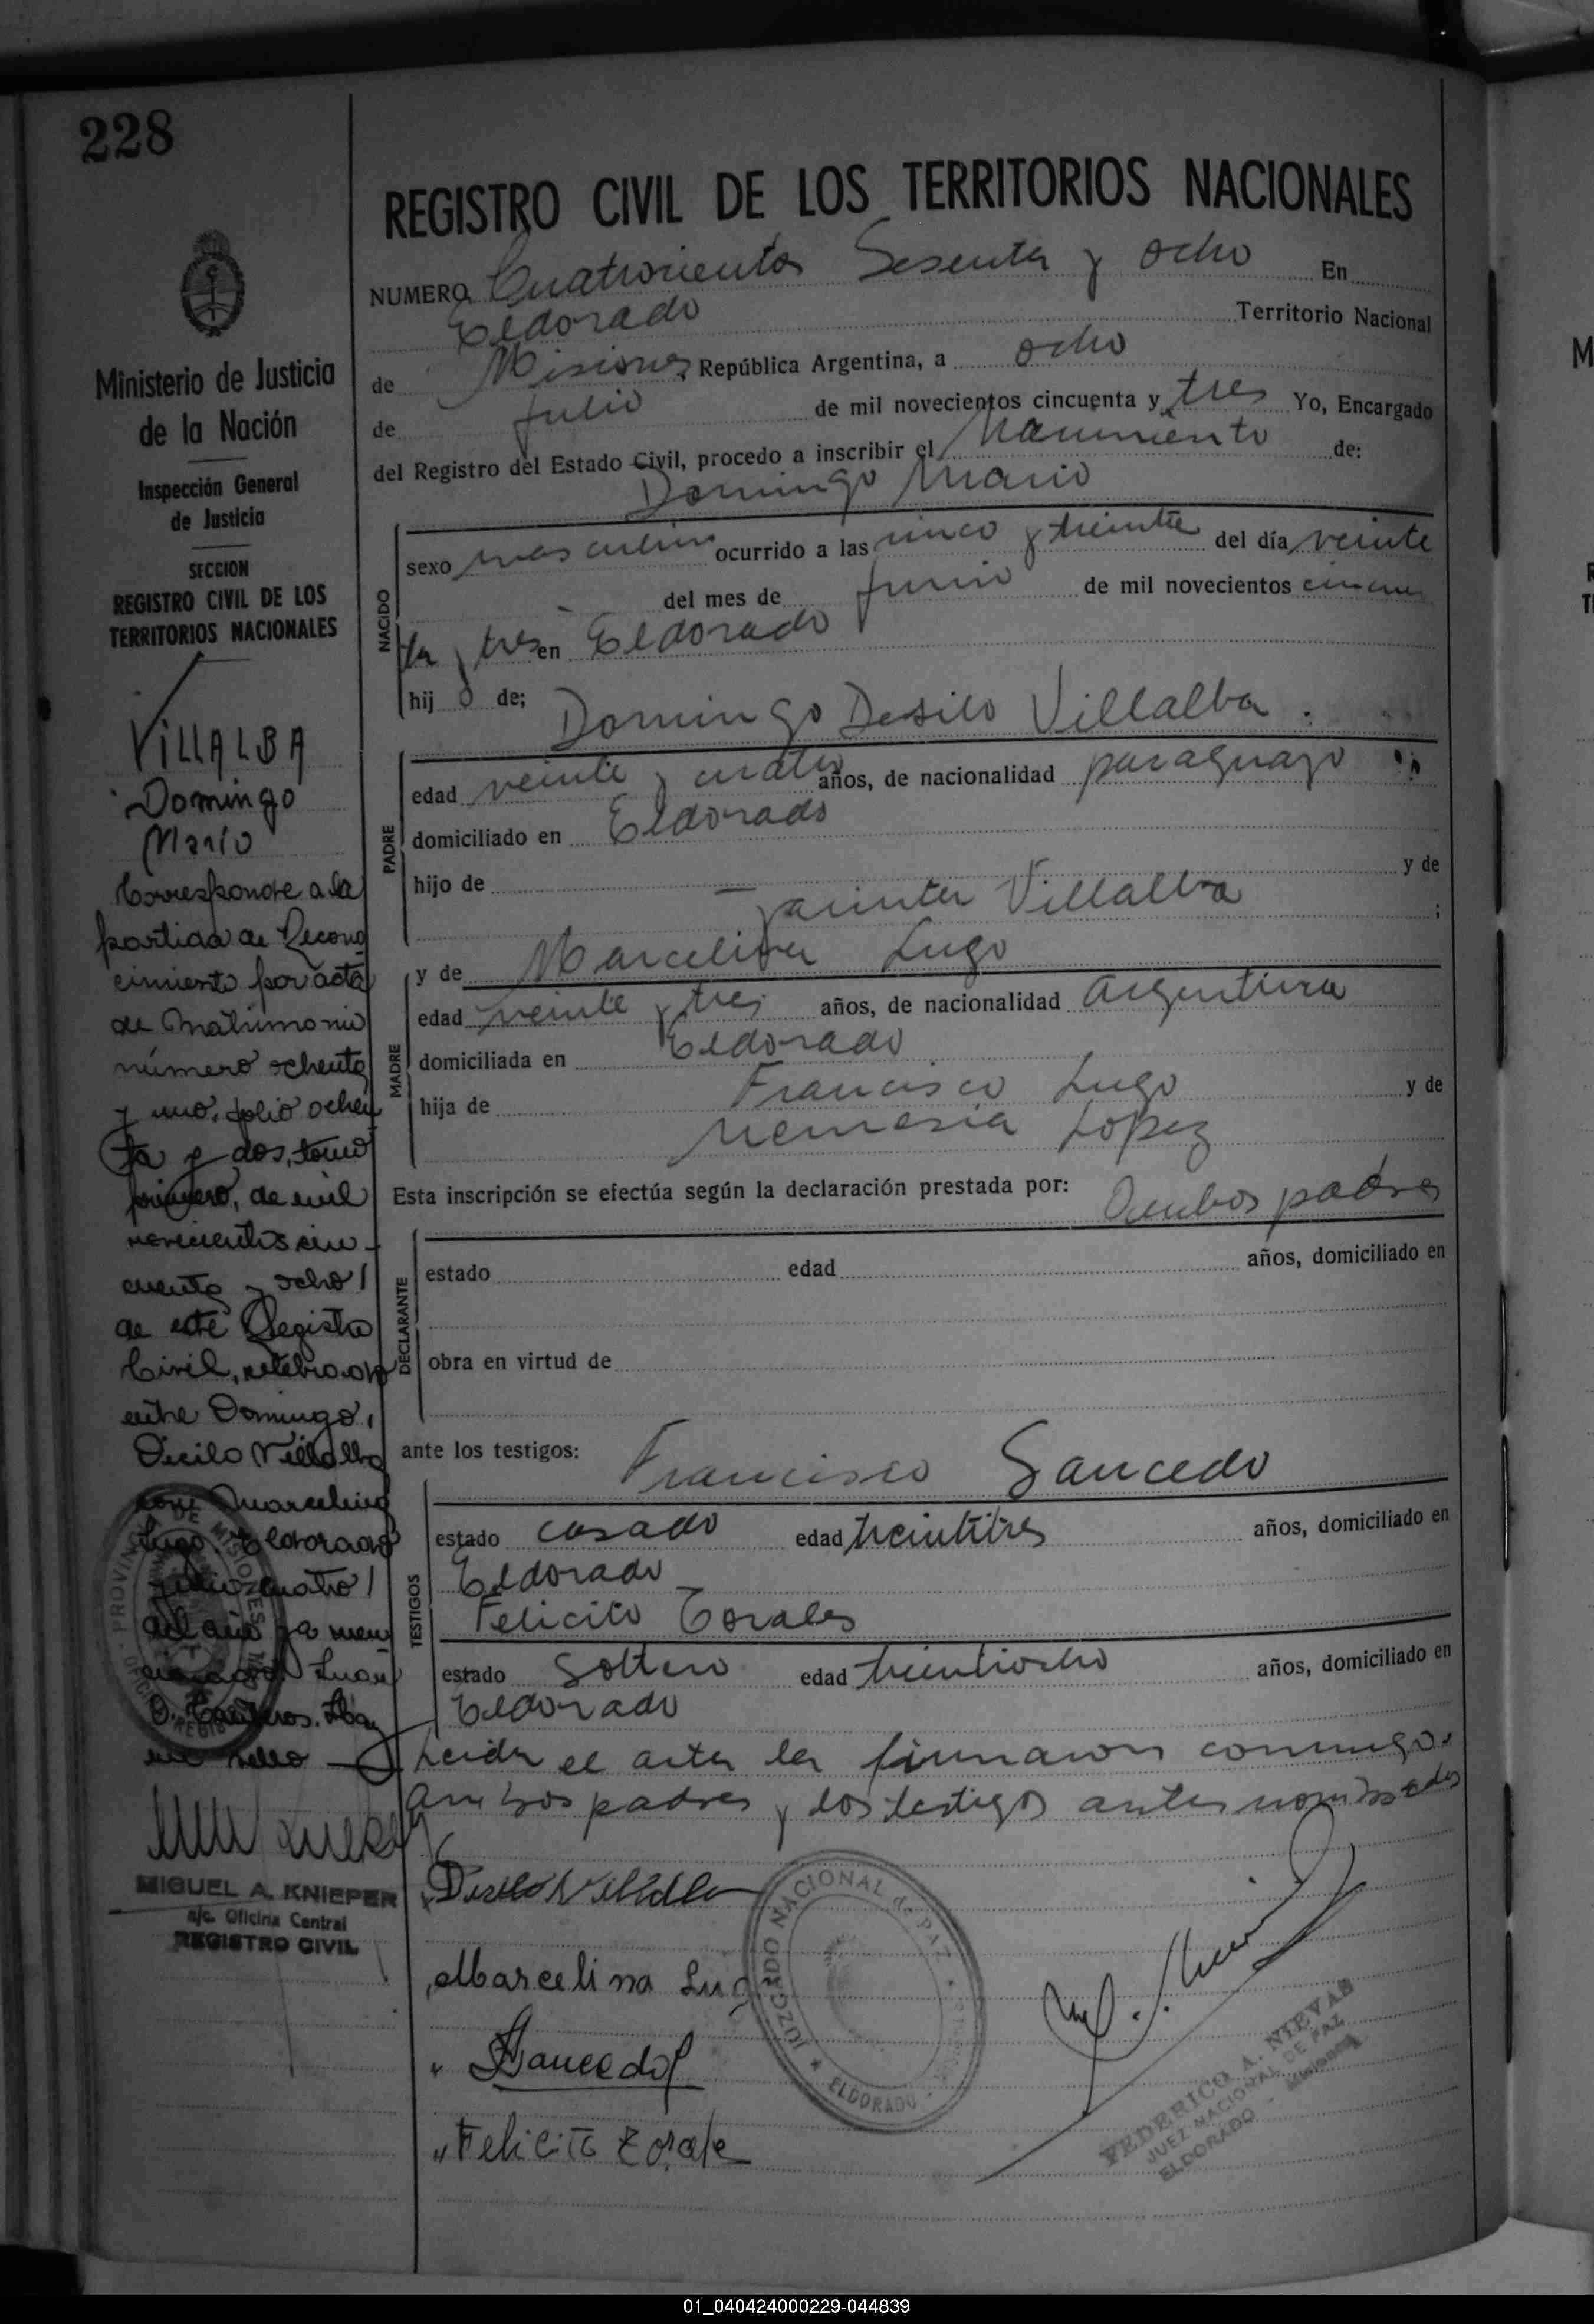 228
REGISTRO CIVIL DE LOS TERRITORIOS NACIONALES
NUMERO Cuatrocientos Sesenta y ocho En
Eldorado Territorio Nacional
de Misiones, República Argentina, a ocho
de Julio de mil novecientos cincuenta y tres Yo, Encargado
del Registro del Estado Civil, procedo a inscribir el Nacimiento de:
Domingo Mario
NACIDO
sexo masculino ocurrido a las cinco y treinta del día veinte
del mes de Junio de mil novecientos cincuen
ta y tres en Eldorado
hij o de; Domingo Desilo Villalba.
PADRE
edad veinte y cuatro años, de nacionalidad paraguayo
domiciliado en Eldorado
hijo de y de
Jacinta Villalba ;
y de Marcelina Lugo
MADRE
edad veinte y tres años, de nacionalidad Argentina
domiciliada en Eldorado
hija de Francisco Lugo y de
Nemesia Lopez
Esta inscripción se efectúa según la declaración prestada por: Ambos padres
DECLARANTE
estado edad años, domiciliado en
obra en virtud de
ante los testigos: Francisco Saucedo
TESTIGOS
estado casado edad treintitres años, domiciliado en
Eldorado
Felicito Torales
estado Soltero edad treintiocho años, domiciliado en
Eldorado
Leida el acta la firmaron conmigo
ambos padres y los testigos antes nombrados
Desilo Villalba
Marcelina Lugo
" Saucedo
" Felicito Torale
JUZGADO NACIONAL de PAZ
ELDORADO
FEDERICO A. NIEVAS
JUEZ NACIONAL DE PAZ
ELDORADO - Misiones
Ministerio de Justicia
de la Nación
Inspección General
de Justicia
SECCION
REGISTRO CIVIL DE LOS
TERRITORIOS NACIONALES
VILLALBA
Domingo
Mario
Corresponde a la
partida de Recono
cimiento por acta
de Matrimonio
número ochenta
y uno, folio ochen
ta y dos, tomo
primero, de mil
novecientos cin-
cuenta y ocho/
de este Registro
Civil, celebrado
entre Domingo,
Dicilo Villalba
con Marcelina
Lugo. Eldorado
julio cuatro/
del año ya men
cionado Juan
Hay
un sello
PROVINCIA DE MISIONES
MIGUEL A. KNIEPER
a/c. Oficina Central
REGISTRO CIVIL
01_040424000229-044839